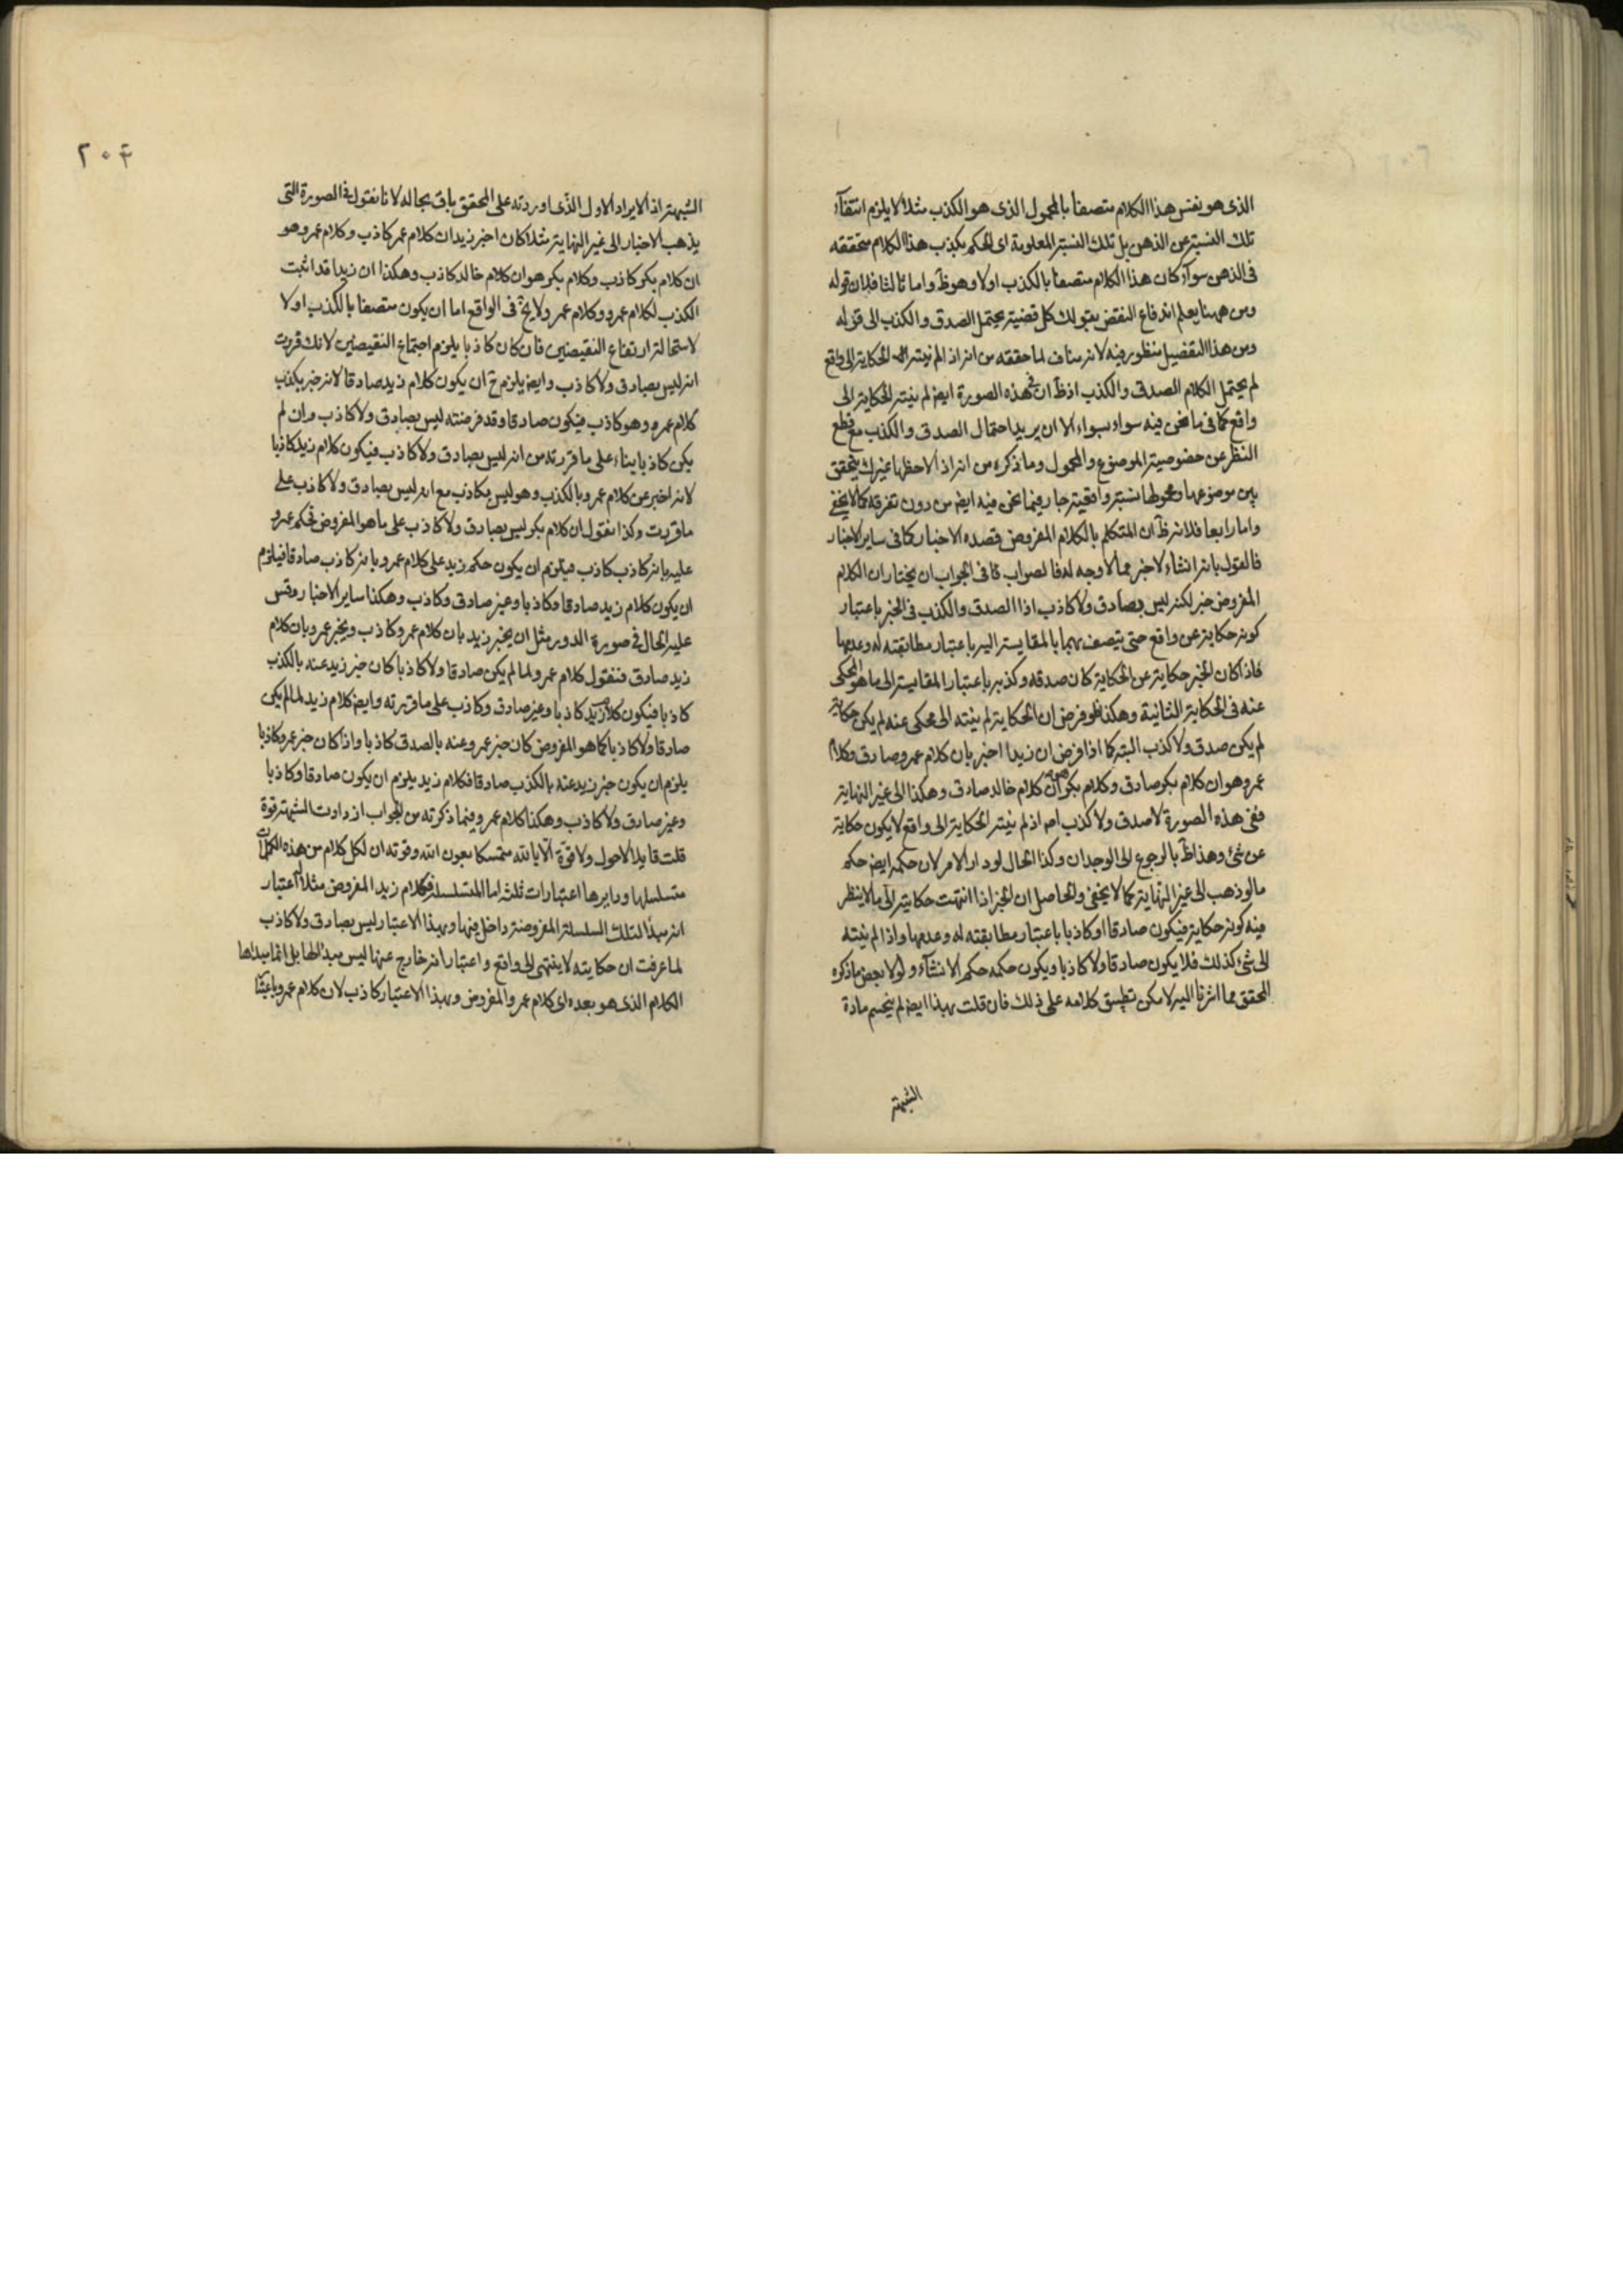 الذى هو نفس هذا الكلام متصفا بالمحمول الذى هو الكذب مثلا لا يلزم انتفآء
تلك النسبة عن الذهن بل تلك النسبة المعلومة اى الحكم بكذب هذا الكلام متحققه
فى الذهن سوآء كان هذا الكلام متصفا بالكذب اولا وهو ظ واما ثالثا فلان قوله
ومن ههنا يعلم اندفاع النقض بقولك كل قضية يحتمل الصدق والكذب الى قوله
ومن هذا التفصيل منظور فيه لانه مناف لما حققه من انه اذا لم ينته الحكاية الى واقع
لم يحتمل الكلام الصدق والكذب اذ ظ ان فى هذه الصورة ايض لم ينته الحكاية الى
واقع كما فى ما نحن فيه سواء بسواء الا ان يريد احتمال الصدق والكذب مع قطع
النظر عن خصوصية الموضوع والمحمول وما ذكره من انه اذا لاحظها غيرك يتحقق
بين موضوعها ومحمولها نسبة واقعية جار فيما نحن فيه ايض من دون تفرقه كما لا يخفى
واما رابعا فلانه ظ ان المتكلم بالكلام المفروض قصده الاخبار كما فى ساير الاخبار
فالقول بانه انشاء لا خبر مما لا وجه له فالصواب فى الجواب ان يختار ان الكلام
المفروض خبر لكنه ليس بصادق ولا كاذب اذ الصدق والكذب فى الخبر باعتبار
كونه حكاية عن واقع حتى يتصف بهما بالمقايسة اليه باعتبار مطابقته له وعدمها
فاذا كان الخبر حكاية عن الحكاية كان صدقه وكذبه باعتبار المقايسة الى ما هو المحكى
عنه فى الحكاية الثانية وهكذا فلو فرض ان الحكاية لم ينته الى محكى عنه لم يكن حكاية
لم يكن صدق ولا كذب البته كما اذا فرض ان زيدا اخبر بان كلام عمرو صادق وكلام
عمرو هو ان كلام بكر صادق وكلام بكر هو ان كلام خالد صادق وهكذا الى غير النهاية
ففى هذه الصورة لا صدق ولا كذب اصلا اذ لم ينته الحكاية الى واقع لا يكون حكاية
عن شئ وهذا ظ بالرجوع الى الوجدان وكذا الحال لو دار الامر لان حكمه ايض حكم
ما لو ذهب الى غير النهاية كما لا يخفى والحاصل ان الخبر اذا انتهت حكايته الى ما لا ينظر
فيه كونه حكاية فيكون صادقا او كاذبا باعتبار مطابقته له وعدمها واذا لم ينته
الى شئ كذلك فلا يكون صادقا ولا كاذبا ويكون حكمه حكم الانشآء ولولا بعض ما ذكره
المحقق مما اشرنا اليه لامكن تطبيق كلامه على ذلك فان قلت بهذا ايض لم ينحسم مادة
الشبهة
٢٠٤
الشبهة اذ الايراد الاول الذى اوردته على المحقق باق بحاله لانا نقول فى الصورة التى
يذهب الاخبار الى غير النهاية مثلا كان اخبر زيد ان كلام عمر كاذب وكلام عمرو هو
ان كلام بكر كاذب وكلام بكر هو ان كلام خالد كاذب وهكذا ان زيدا قد اثبت
الكذب لكلام عمرو وكلام عمرو لا يخ فى الواقع اما ان يكون متصفا بالكذب اولا
لاستحالة ارتفاع النقيضين فان كان كاذبا يلزم اجتماع النقيضين لانك قررت
انه ليس بصادق ولا كاذب وايض يلزم ح ان يكون كلام زيد صادقا لانه خبر بكذب
كلام عمرو وهو كاذب فيكون صادقا وقد فرضته ليس بصادق ولا كاذب وان لم
يكن كاذبا بناء على ما قررته من انه ليس بصادق ولا كاذب فيكون كلام زيد كاذبا
لانه اخبر عن كلام عمرو بالكذب وهو ليس بكاذب مع انه ليس بصادق ولا كاذب على
ما قررت وكذا نقول ان كلام بكر ليس بصادق ولا كاذب على ما هو المفروض فحكم عمرو
عليه بانه كاذب كاذب فيلزم ان يكون حكم زيد على كلام عمرو بانه كاذب صادقا فيلزم
ان يكون كلام زيد صادقا وكاذبا وغير صادق وكاذب وهكذا ساير الاخبار وقس
عليه الحال فى صورة الدور مثل ان يخبر زيد بان كلام عمرو كاذب ويخبر عمرو بان كلام
زيد صادق فنقول كلام عمرو لما لم يكن صادقا ولا كاذبا كان خبر زيد عنه بالكذب
كاذبا فيكون كلام زيد كاذبا وغير صادق وكاذب على ما قررته وايض كلام زيد لما لم يكن
صادقا ولا كاذبا كما هو المفروض كان خبر عمرو عنه بالصدق كاذبا واذا كان خبر عمرو كاذبا
يلزم ان يكون خبر زيد عنه بالكذب صادقا فكلام زيد يلزم ان يكون صادقا وكاذبا
وغير صادق ولا كاذب وهكذا كلام عمرو فيما ذكرته من الجواب ازدادت الشبهة قوة
قلت قايلا لاحول ولا قوة الا بالله متمسكا بعون الله وقوته ان لكل كلام من هذه الكلمات
متسلسلها ودايرها اعتبارات ثلثه اما المتسلسلة فكلام زيد المفروض مثلا له اعتبار
انه مبدأ لتلك السلسلة المفروضة داخل فيها وبهذا الاعتبار ليس بصادق ولا كاذب
لما عرفت ان حكايته لا ينتهى الى واقع واعتبار انه خارج عنها ليس مبدا لها بل انما مبداها
الكلام الذى هو بعده اى كلام عمرو المفروض وبهذا الاعتبار كاذب لان كلام عمرو باعتبار